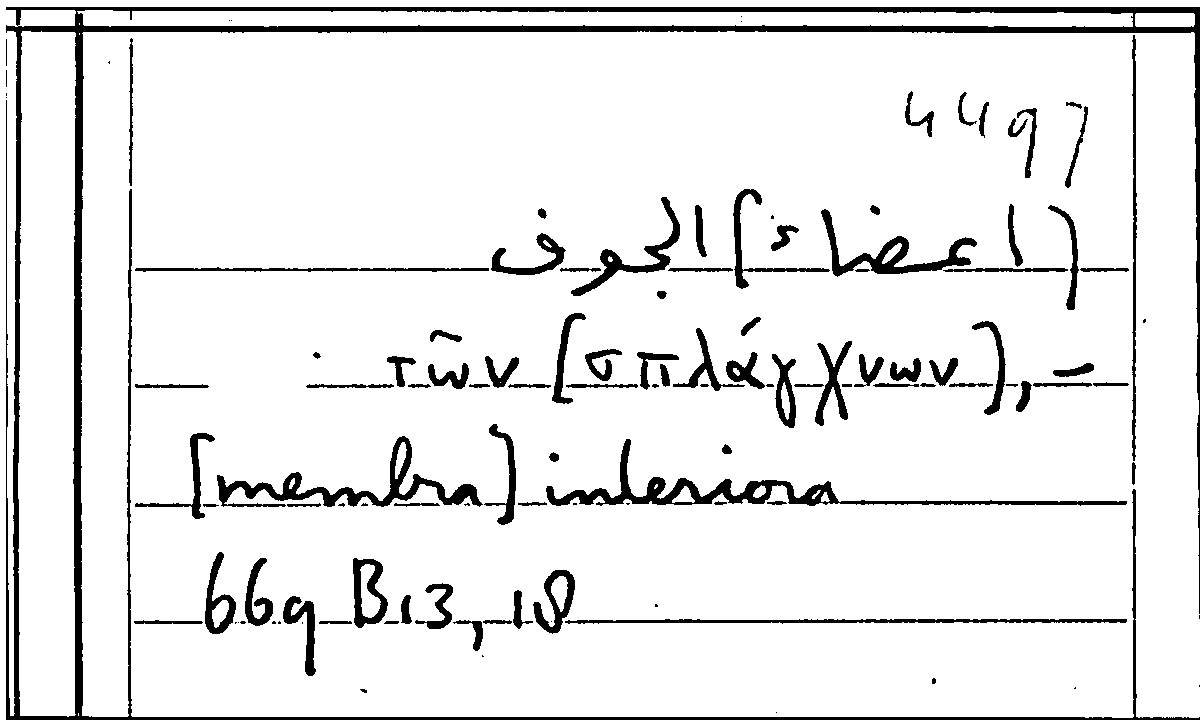 4497
[اعضاء] الجوف
τῶν [σπλάγχνων], –
[membra] interiora
669 B13, 18